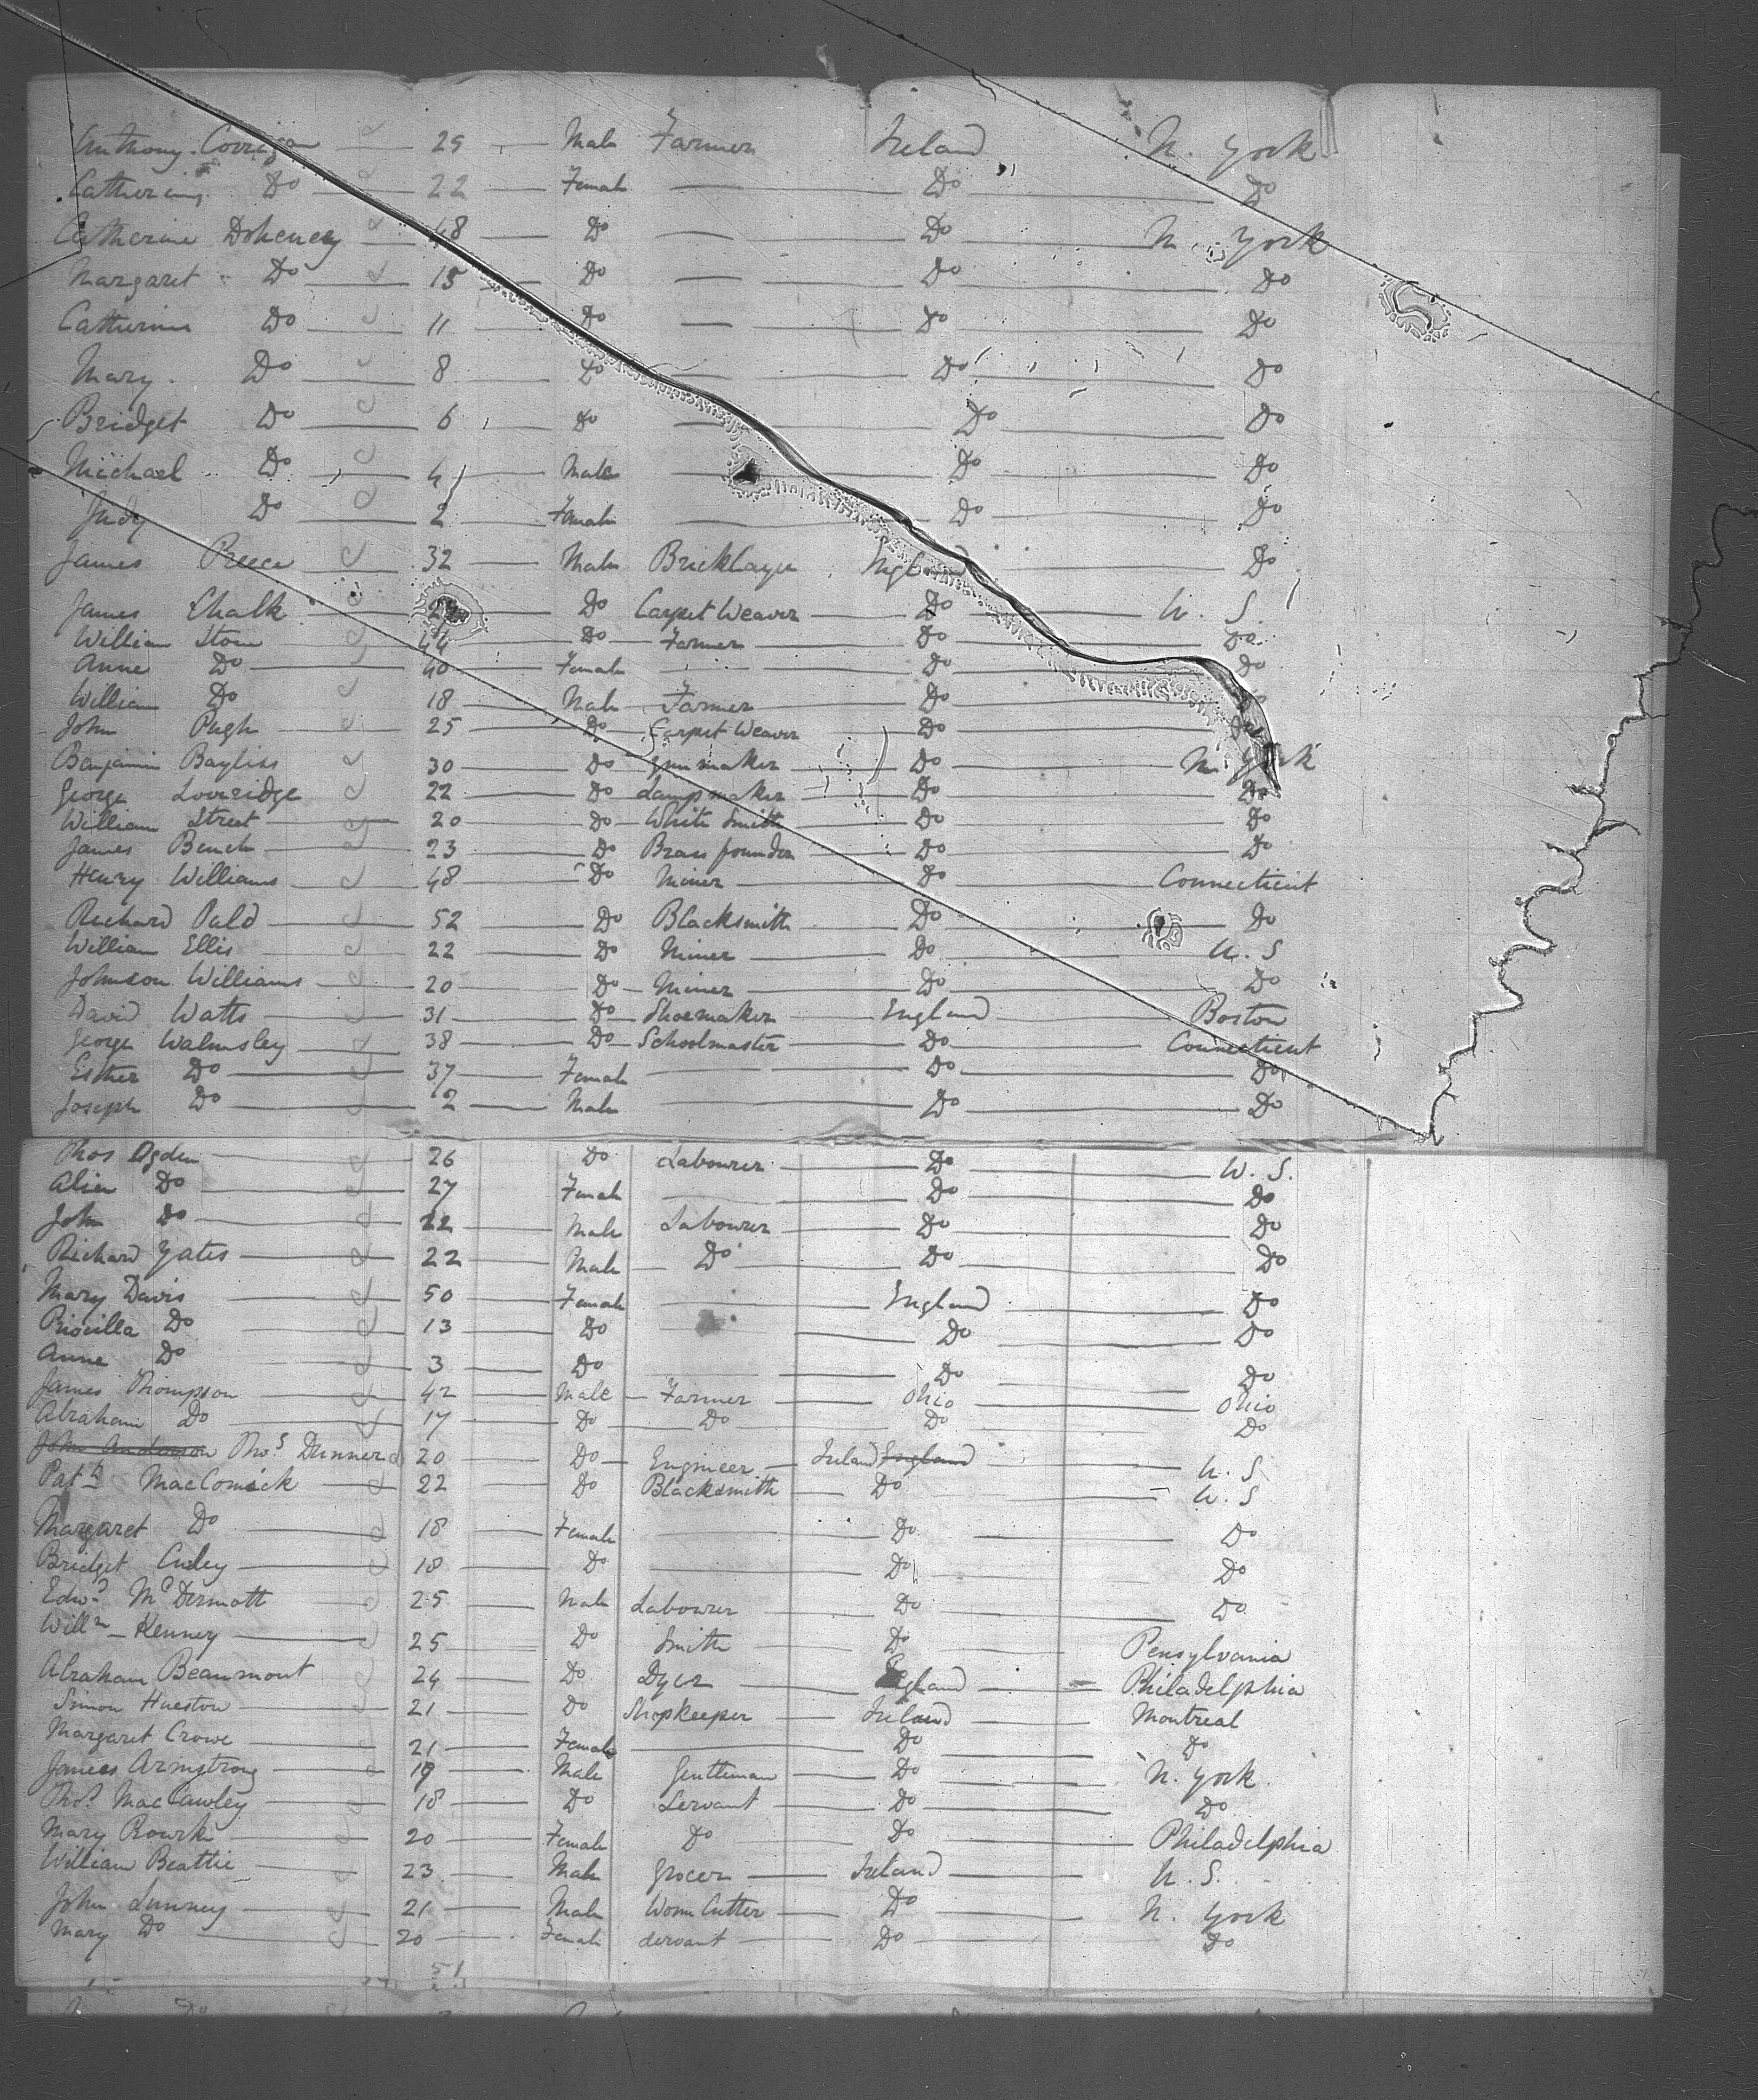 Anthony Corrigan 25 Male Farmer Ireland N. York
Catherine Do 22 Female Do Do
Catherine Doheney 48 Do Do N. York
Margaret Do 15 Do Do Do
Catherine Do 11 Do Do Do
Mary Do 8 Do Do Do
Bridget Do 6 Do Do Do
Michael Do 4 Male Do Do
Judy Do 2 Female Do Do
James Preece 32 Male Bricklayer England Do
James Chalk Do Carpet Weaver Do U. S.
William Stone 44 Do Farmer Do Do
Anne Do 40 Female Do Do
William Do 18 Male Farmer Do Do
John Pugh 25 Do Carpet Weaver Do Do
Benjamin Bayliss 30 Do Gunmaker Do N. York
George Loveridge 22 Do Lampmaker Do Do
William Street 20 Do White Smith Do Do
James Bench 23 Do Brass founder Do Do
Henry Williams 48 Do Miner Do Connecticut
Richard 52 Do Blacksmith Do Do
William Ellis 22 Do Miner Do U. S
Johnson Williams 20 Do Miner Do Do
David Watts 31 Do Shoemaker England Boston
George Walmsley 38 Do Schoolmaster Do Connecticut
Esther Do 37 Female Do Do
Joseph Do 2 Male Do Do
Thos Ogden 26 Do Labourer Do U. S.
Alice Do 27 Female Do Do
John Do 22 Male Labourer Do Do
Richard Yates 22 Male Do Do Do
Mary Davis 50 Female England Do
Priscilla Do 13 Do Do Do
Anne Do 3 Do Do Do
James Thompson 42 Male Farmer Ohio Ohio
Abraham Do 17 Do Do Do Do
John Anderson Thos Dunner 20 Do Engineer Ireland England U. S
Patk MacComick 22 Do Blacksmith Do U. S
Margaret Do 18 Female Do Do
Bridget 18 Do Do Do
Edwd McDermott 25 Male Labourer Do Do
Willm Kenney 25 Do Smith Do Pensylvania
Abraham Beaumont 24 Do Dyer England Philadelphia
Simon Hueston 21 Do Shopkeeper Ireland Montreal
Margaret Crowe 21 Female Do Do
James Armstrong 19 Male Gentleman Do N. York
Thos MacCawley 18 Do Servant Do Do
Mary Rourke 20 Female Do Do Philadelphia
William Beattie 23 Male Grocer Ireland U. S.
John Lunney 21 Male Do N. York
Mary Do 20 Female Servant Do Do
51